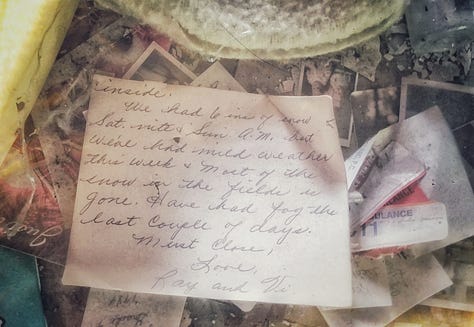 inside.
We had 6 ins of snow
Sat. nite & Sun A.M. but
we've had mild weather
this week & most of the
snow in the fields is
gone. Have had fog the
last couple of days.
Must Close,
Love,
Ray and Vi
AMBULANCE
911